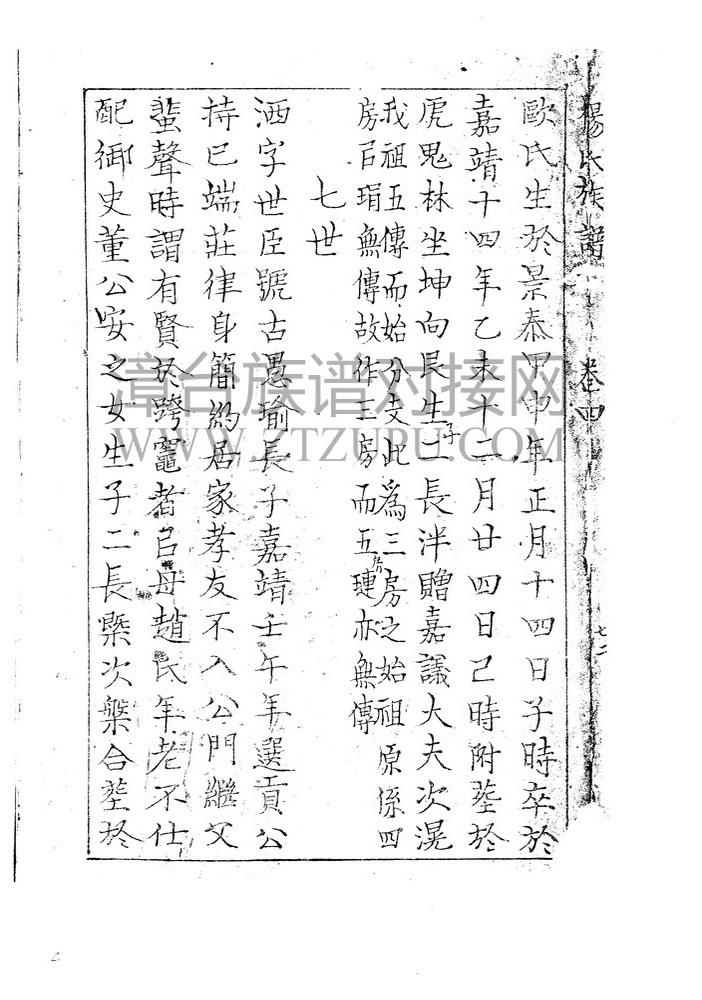 楊氏族譜 卷四 七二
歐氏生於景泰甲申年正月十四日子時卒於
嘉靖十四年乙未十二月廿四日己時附塟於
虎鬼林坐坤向艮生二子長泮贈嘉議大夫次滉
我祖五傳而始分支此為三房之始祖原係四
房因琄無傳故作三房而五房璉亦無傳
七世
洒字世臣號古愚瑜長子嘉靖壬午年選貢公
持己端莊律身簡約居家孝友不入公門繼父
蜚聲時謂有賢於跨竈者因母趙氏年老不仕
配御史董公安之女生子二長槩次槃合塟於
漳台族谱对接网
WWW.ZTZUPU.COM